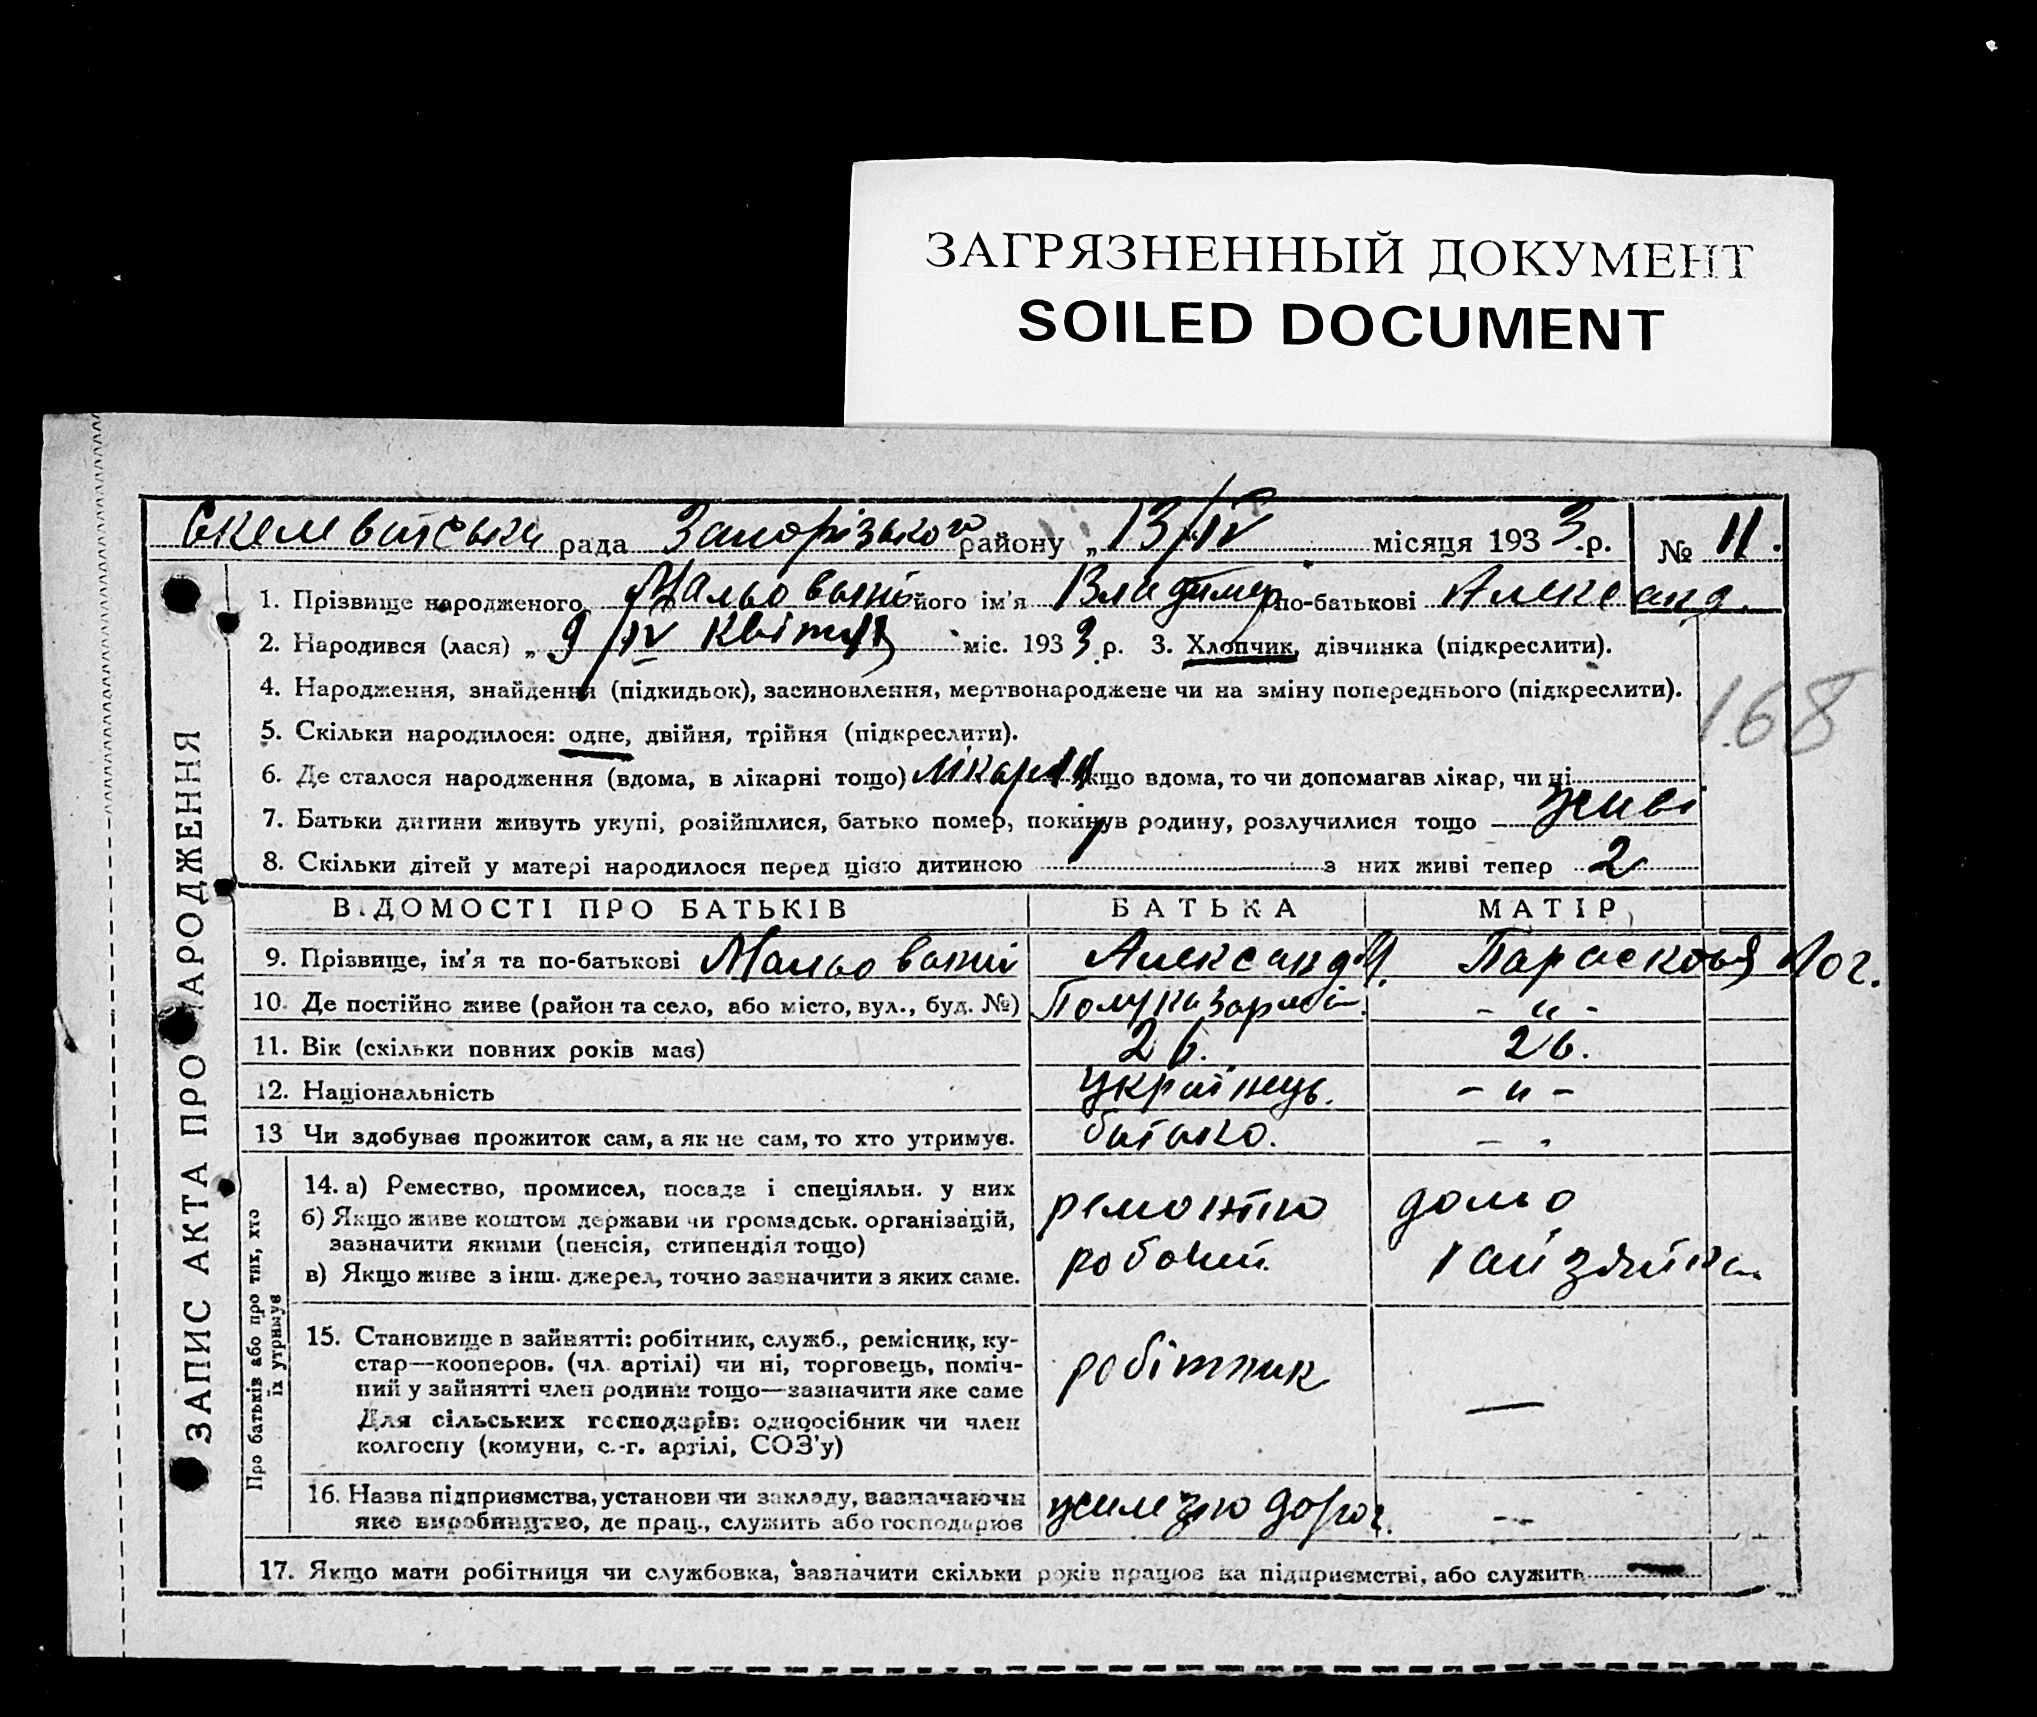 ЗАГРЯЗНЕННЫЙ ДОКУМЕНТ
SOILED DOCUMENT
рада Запорізького району „ 13/IV місяця 1933 р. № 11.
1. Прізвище народженого його ім'я Владимер по-батькові Александ.
2. Народився (лася) „ 9/IV квітня міс. 1933 р. 3. Хлопчик, дівчинка (підкреслити).
4. Народження, знайдення (підкидьок), засиновлення, мертвонароджене чи на зміну попереднього (підкреслити).
168
5. Скільки народилося: одне, двійня, трійня (підкреслити).
6. Де сталося народження (вдома, в лікарні тощо) лікарні якщо вдома, то чи допомагав лікар, чи ні
7. Батьки дитини живуть укупі, розійшлися, батько помер, покинув родину, розлучилися тощо живі
8. Скільки дітей у матері народилося перед цією дитиною з них живі тепер 2
ВІДОМОСТІ ПРО БАТЬКІВ БАТЬКА МАТІР
9. Прізвище, ім'я та по-батькові Александ Парасковья
10. Де постійно живе (район та село, або місто, вул., буд. №) - „ -
11. Вік (скільки повних років має) 26. 26.
12. Національність українець. - „ -
13 Чи здобуває прожиток сам, а як не сам, то хто утримує. батько.
14. а) Ремество, промисел, посада і спеціяльн. у них
б) Якщо живе коштом держави чи громадськ. організацій,
зазначити якими (пенсія, стипендія тощо)
в) Якщо живе з інш. джерел, точно зазначити з яких саме.
ремонтно
робочий.
домо
15. Становище в зайнятті: робітник, служб., ремісник, ку-
стар—кооперов. (чл. артілі) чи ні, торговець, поміч-
ний у зайнятті член родини тощо—зазначити яке саме
Для сільських господарів: одноосібник чи член
колгоспу (комуни, с.-г. артілі, СОЗ'у)
робітник —
16. Назва підприємства, установи чи закладу, зазначаючи
яке виробництво, де прац., служить або господарює
дорог. --
17. Якщо мати робітниця чи службовка, зазначити скільки років працює на підприємстві, або служить —
ЗАПИС АКТА ПРО НАРОДЖЕННЯ
Про батьків або про тих, хто
їх утримує